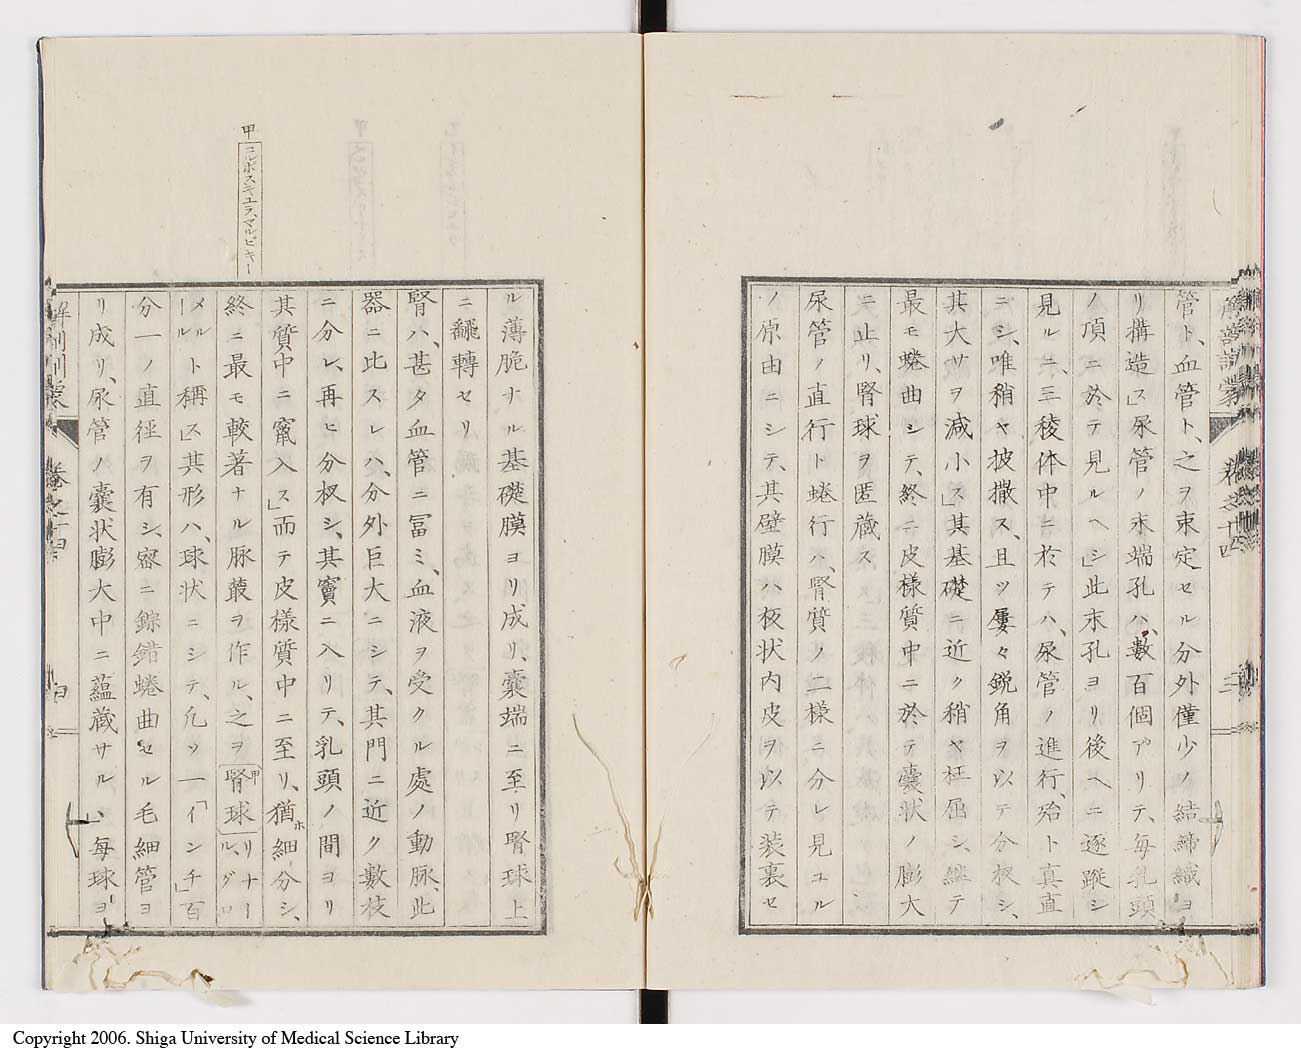 解剖訓蒙
巻之十四
管ト、血管ト、之ヲ束定セル分外僅少ノ結締織ヨ
リ構造ス」尿管ノ末端孔ハ、數百個アリテ、毎乳頭
ノ頂ニ於テ見ルヘシ」此末孔ヨリ後ヘニ逐蹤シ
見ルニ、三稜体中ニ於テハ、尿管ノ進行、殆ト真直
ニシ、唯稍ヤ披撒ス、且ツ屢々鋭角ヲ以テ分杈シ、
其大サヲ減小ス」其基礎ニ近ク稍ヤ枉屈シ、継テ
最モ蜷曲シテ、終ニ皮様質中ニ於テ嚢状ノ膨大
ニ止リ、腎球ヲ匿蔵ス
尿管ノ直行ト蜷行ハ、腎質ノ二様ニ分レ見ユル
ノ原由ニシテ、其壁膜ハ板状内皮ヲ以テ装裏セ
ル薄脆ナル基礎膜ヨリ成リ、嚢端ニ至リ腎球上
ニ飜轉セリ
腎ハ、甚タ血管ニ冨ミ、血液ヲ受クル處ノ動脈、此
器ニ比スレハ、分外巨大ニシテ、其門ニ近ク數枝
ニ分レ、再ヒ分杈シ、其竇ニ入リテ、乳頭ノ間ヨリ
其質中ニ竄入ス」而テ皮様質中ニ至リ、猶ホ細分シ、
終ニ最モ較著ナル脉叢ヲ作ル、之ヲ甲腎球リナール、グロ
メルールト稱ス」其形ハ、球状ニシテ、凢ソ一「インチ」百
分一ノ直径ヲ有シ、密ニ錝錯蜷曲セル毛細管ヨ
リ成リ、尿管ノ嚢状膨大中ニ蘊蔵サル」、毎球ヨ
甲 コルポスキユラ、マルピキー
解剖訓蒙
巻之十四
Copyright 2006. Shiga University of Medical Science Library